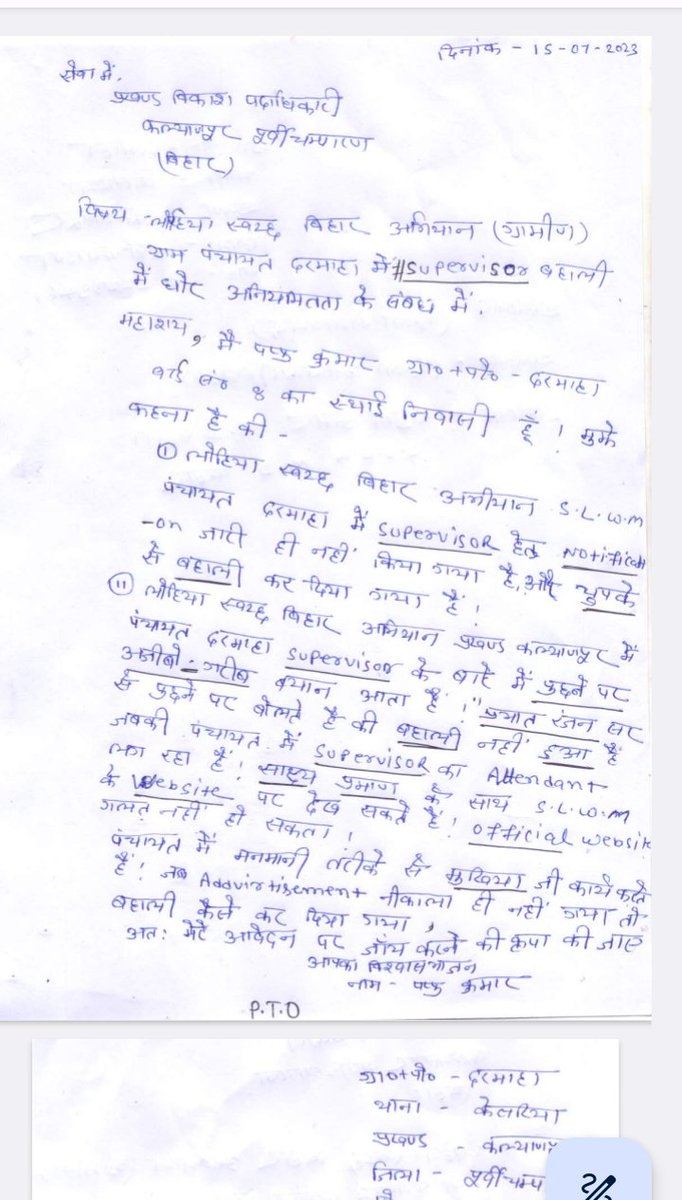 दिनांक - 15-07-2023
सेवा में,
प्रखण्ड विकाश पदाधिकारी
कल्याणपुर पूर्वीचम्पारण
(बिहार)
विषय - लोहिया स्वच्छ बिहार अभियान (ग्रामीण)
ग्राम पंचायत दरमाहा में #Supervisor बहाली
में घोर अनियमितता के संबंध में.
महाशय, मैं कुमार ग्रा०+पो० - दरमाहा
वार्ड नं० 8 का स्थाई निवासी हूँ ! मुझे
कहना है की -
(I) लोहिया स्वच्छ बिहार अभीयान S.L.W.M
पंचायत दरमाहा में SUPERVISOR हेतु Notificati
-on जारी ही नहीं किया गया है, और चुपके
से बहाली कर दिया गया है !
(II) लोहिया स्वच्छ बिहार अभियान प्रखण्ड कल्याणपुर में
पंचायत दरमाहा Supervisor के बारे में पुछने पर
अजीबो-गरीब बयान आता है ! "प्रभात रंजन सर
से पुछने पर बोलते है की बहाली नहीं हुआ है
जबकी पंचायत में Supervisor का Attendant
लग रहा है ! साक्ष्य प्रमाण के साथ S.L.W.M
के Website पर देख सकते है ! Official website
गलत नहीं हो सकता !
पंचायत में मनमानी तरीके से मुखिया जी कार्य करते
है ! जब Addvirtisement नीकाला ही नहीं गया तो
बहाली कैसे कर दिया गया,
अतः मेरे आवेदन पर जाँच करने की कृपा की जाए
आपका विश्वासभाजन
नाम - कुमार
P.T.O
ग्रा०+पो० - दरमाहा
थाना - केसरिया
प्रखण्ड - कल्याणपु
जिला - पूर्वीचम्प
2/2